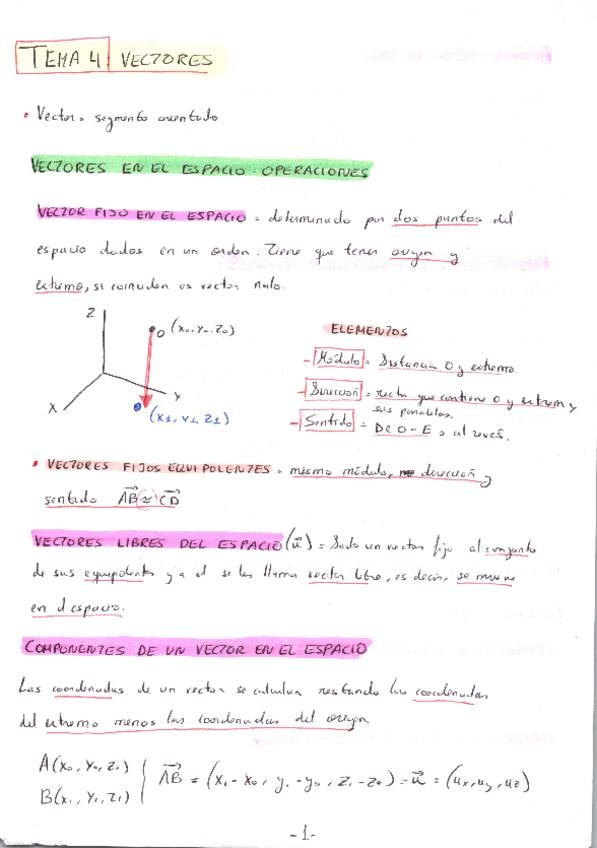 TEMA 4 VECTORES
• Vector = segmento orientado
VECTORES EN EL ESPACIO: OPERACIONES
VECTOR FIJO EN EL ESPACIO = determinado por dos puntos del
espacio dados en un orden. Tiene que tener origen y
extremo, si coinciden es vector nulo.
Z
O (x₀, y₀, z₀)
Y
X
(x₁, y₁, z₁)
ELEMENTOS
- Módulo = Distancia O y extremo.
- Dirección = recta que contiene O y extremo y
sus paralelas.
- Sentido = De O-E o al revés.
• VECTORES FIJOS EQUIPOLENTES = mismo módulo, dirección y
sentido AB⃗ ≈ CD⃗
VECTORES LIBRES DEL ESPACIO (u⃗) = Dado un vector fijo al conjunto
de sus equipolentes y a el se les llama vector libre, es decir, se mueve
en el espacio.
COMPONENTES DE UN VECTOR EN EL ESPACIO
Las coordenadas de un vector se calculan restando las coordenadas
del extremo menos las coordenadas del origen
A(x₀, y₀, z₀)
B(x₁, y₁, z₁)
AB⃗ = (x₁ - x₀, y₁ - y₀, z₁ - z₀) = u⃗ = (ux, uy, uz)
-1-